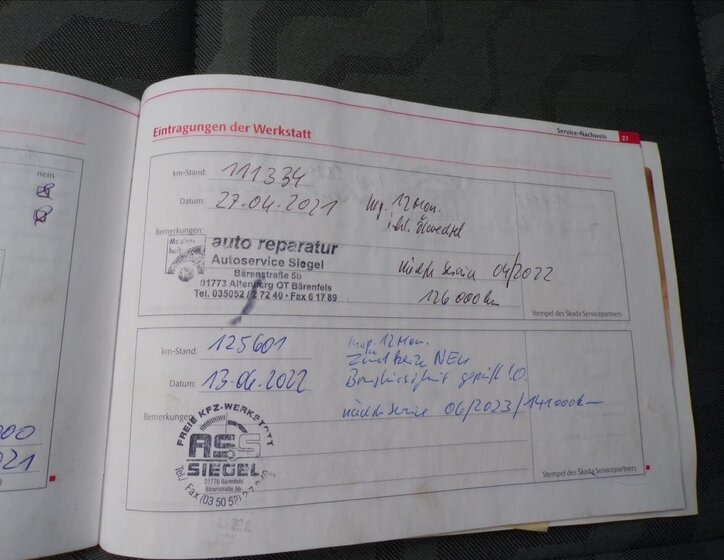 Service-Nachweis 27
Eintragungen der Werkstatt
nein
km-Stand: 111334
Datum: 27.04.2021
Insp. 12 Mon.
inkl. Ölwechsel
Bemerkungen:
auto reparatur
Autoservice Siegel
Bärenstraße 5b
01773 Altenberg OT Bärenfels
Tel. 035052 / 2 72 40 · Fax 6 17 89
nächste Service 04/2022
126 000 km
Stempel des Škoda Servicepartners
km-Stand: 125601
Insp. 12 Mon.
Zündkerze NEU
Datum: 13-06.2022
Bremsflüssigkeit geprüft i.O.
nächste Service 06/2023/141000km
Bemerkungen:
FREIE KFZ-WERKSTATT
ASS
SIEGEL
Bärenstraße 5b
Stempel des Škoda Servicepartners